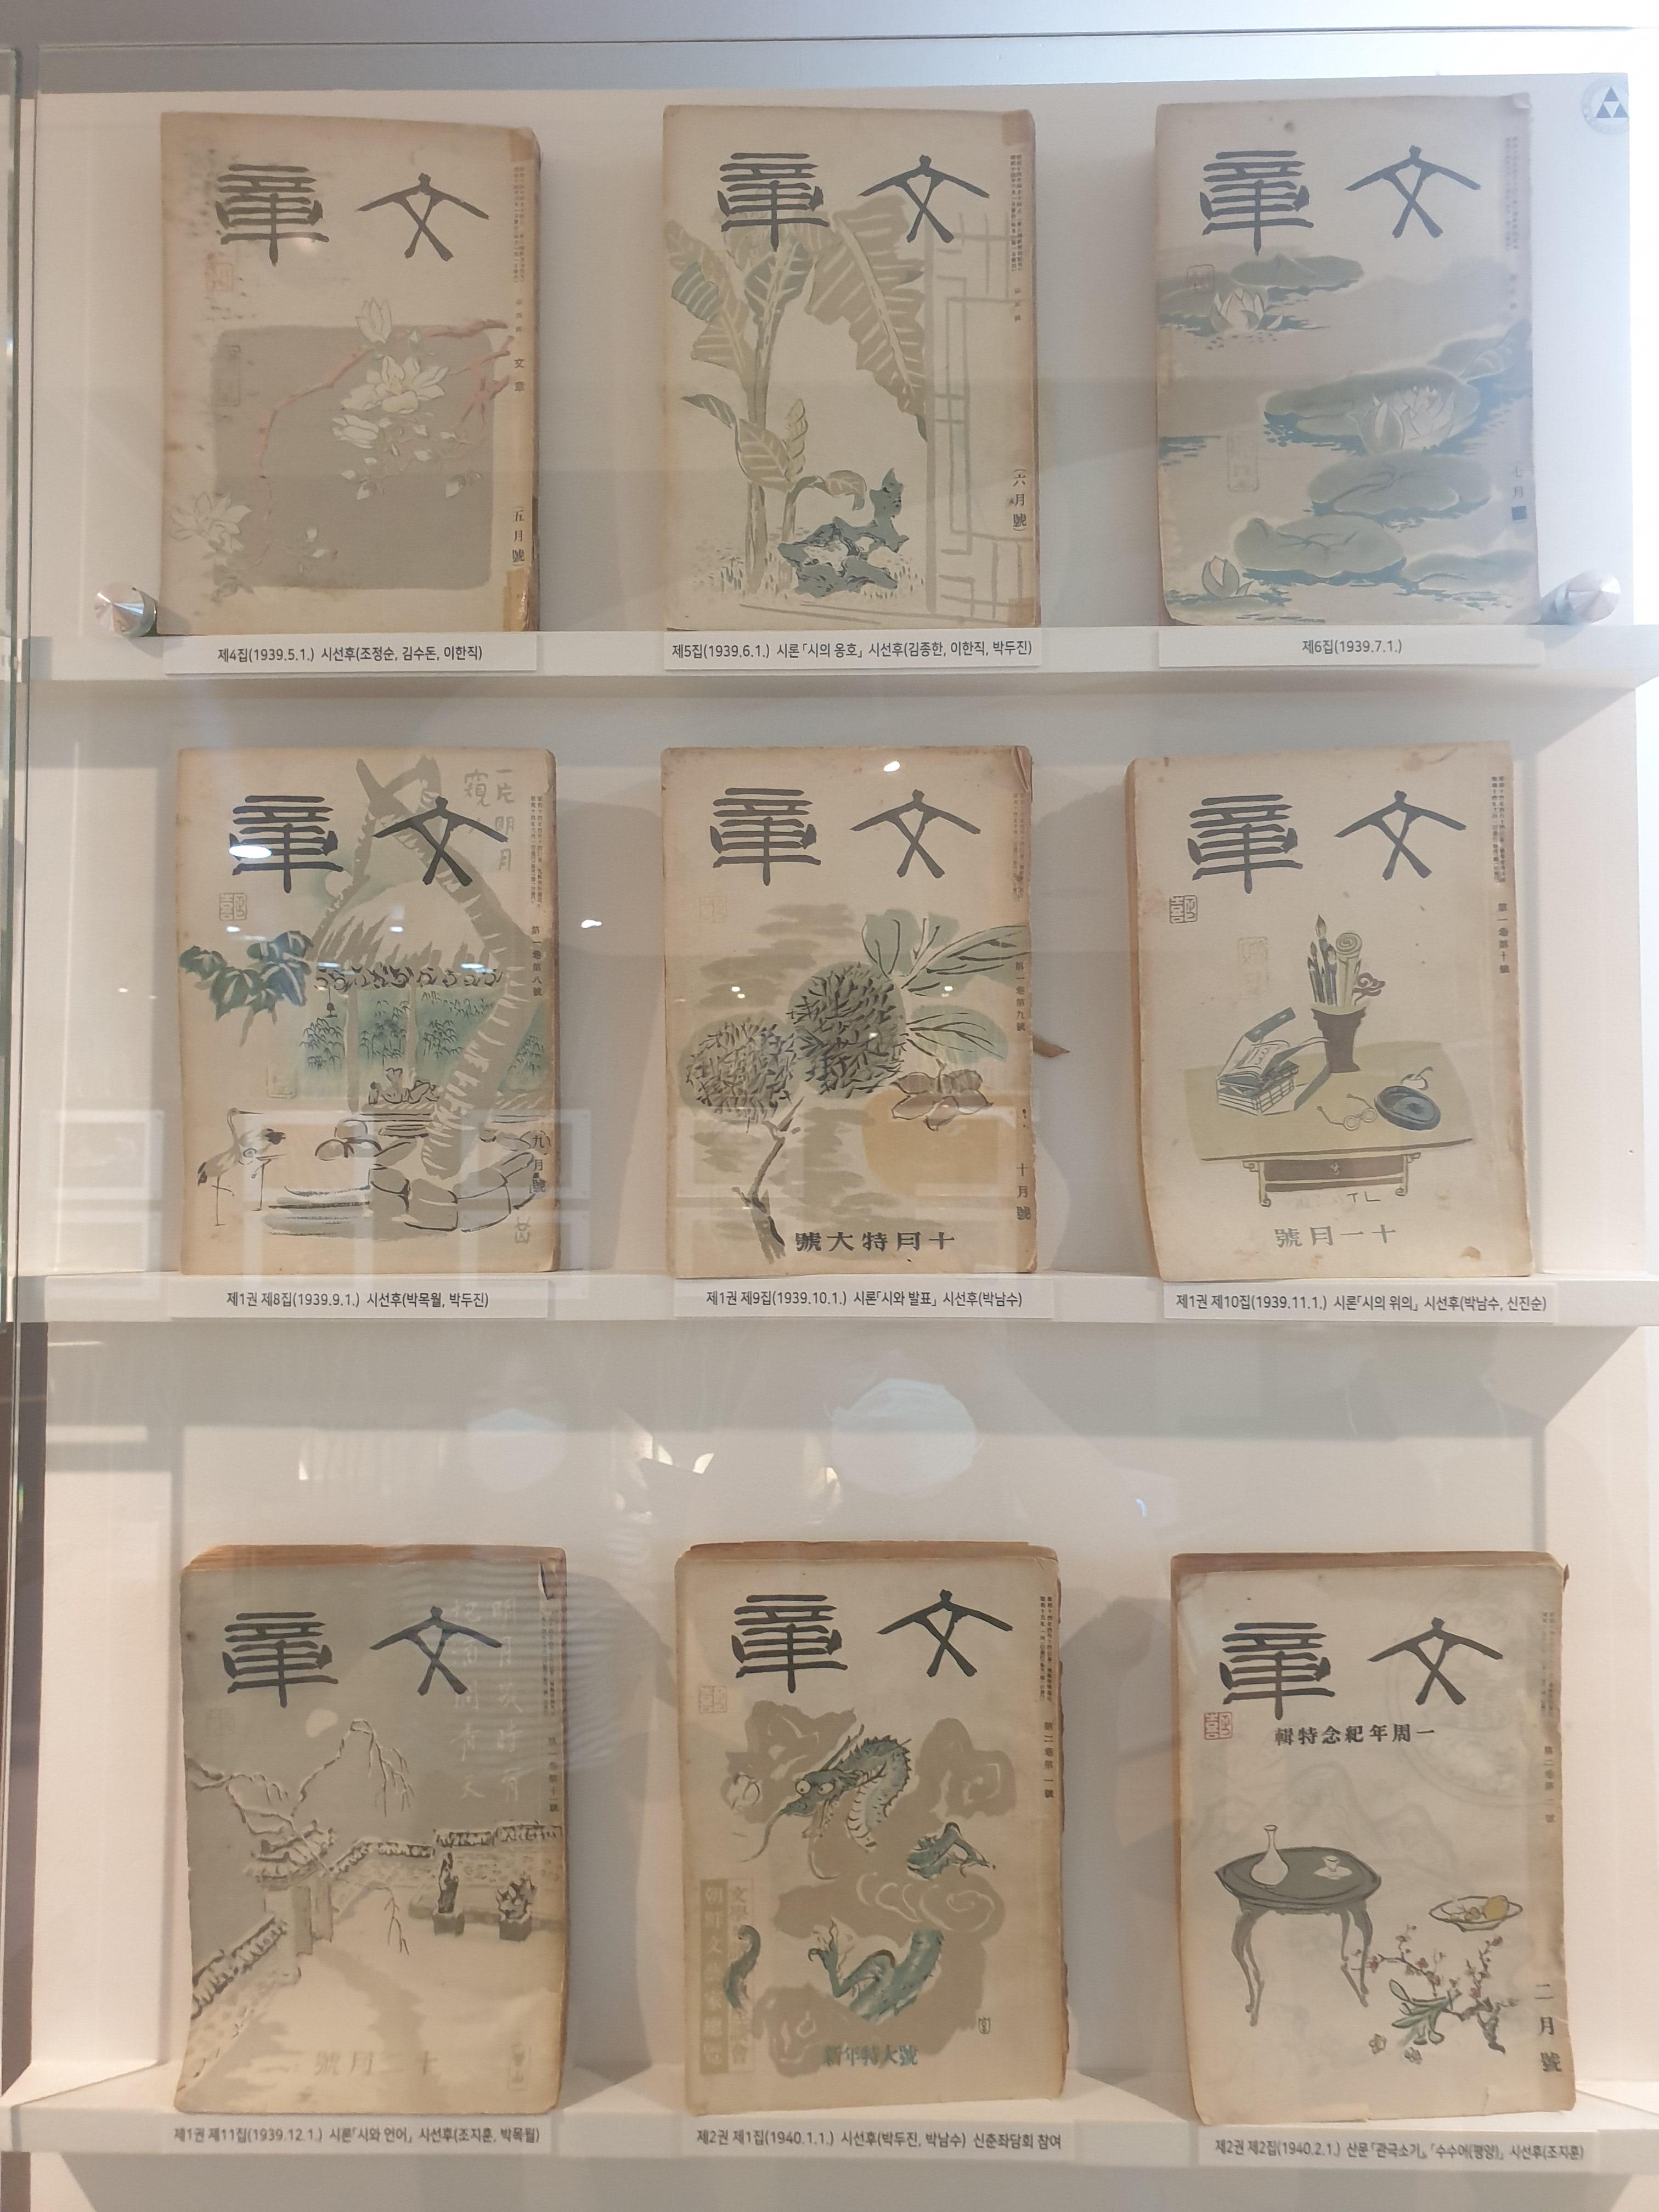 文章
五月號
제4집(1939.5.1.) 시선후(조정순, 김수돈, 이한직)
文章
(六月號)
제5집(1939.6.1.) 시론「시의 옹호」 시선후(김종한, 이한직, 박두진)
文章
七月
제6집(1939.7.1.)
文章
一片明月
窺
第一卷第八號
九月號
제1권 제8집(1939.9.1.) 시선후(박목월, 박두진)
文章
第一卷第九號
十月號
十月特大號
제1권 제9집(1939.10.1.) 시론「시와 발표」 시선후(박남수)
文章
第一卷第十號
十一月號
제1권 제10집(1939.11.1.) 시론「시의 위의」 시선후(박남수, 신진순)
文章
明月幾時有
把酒問青天
十二月號
제1권 제11집(1939.12.1.) 시론「시와 언어」 시선후(조지훈, 박목월)
文章
第二卷第一號
新年特大號
제2권 제1집(1940.1.1.) 시선후(박두진, 박남수) 신춘좌담회 참여
文章
一周年紀念特輯
第二卷第二號
二月號
제2권 제2집(1940.2.1.) 산문「관극소기」,「수수어(평양)」 시선후(조지훈)